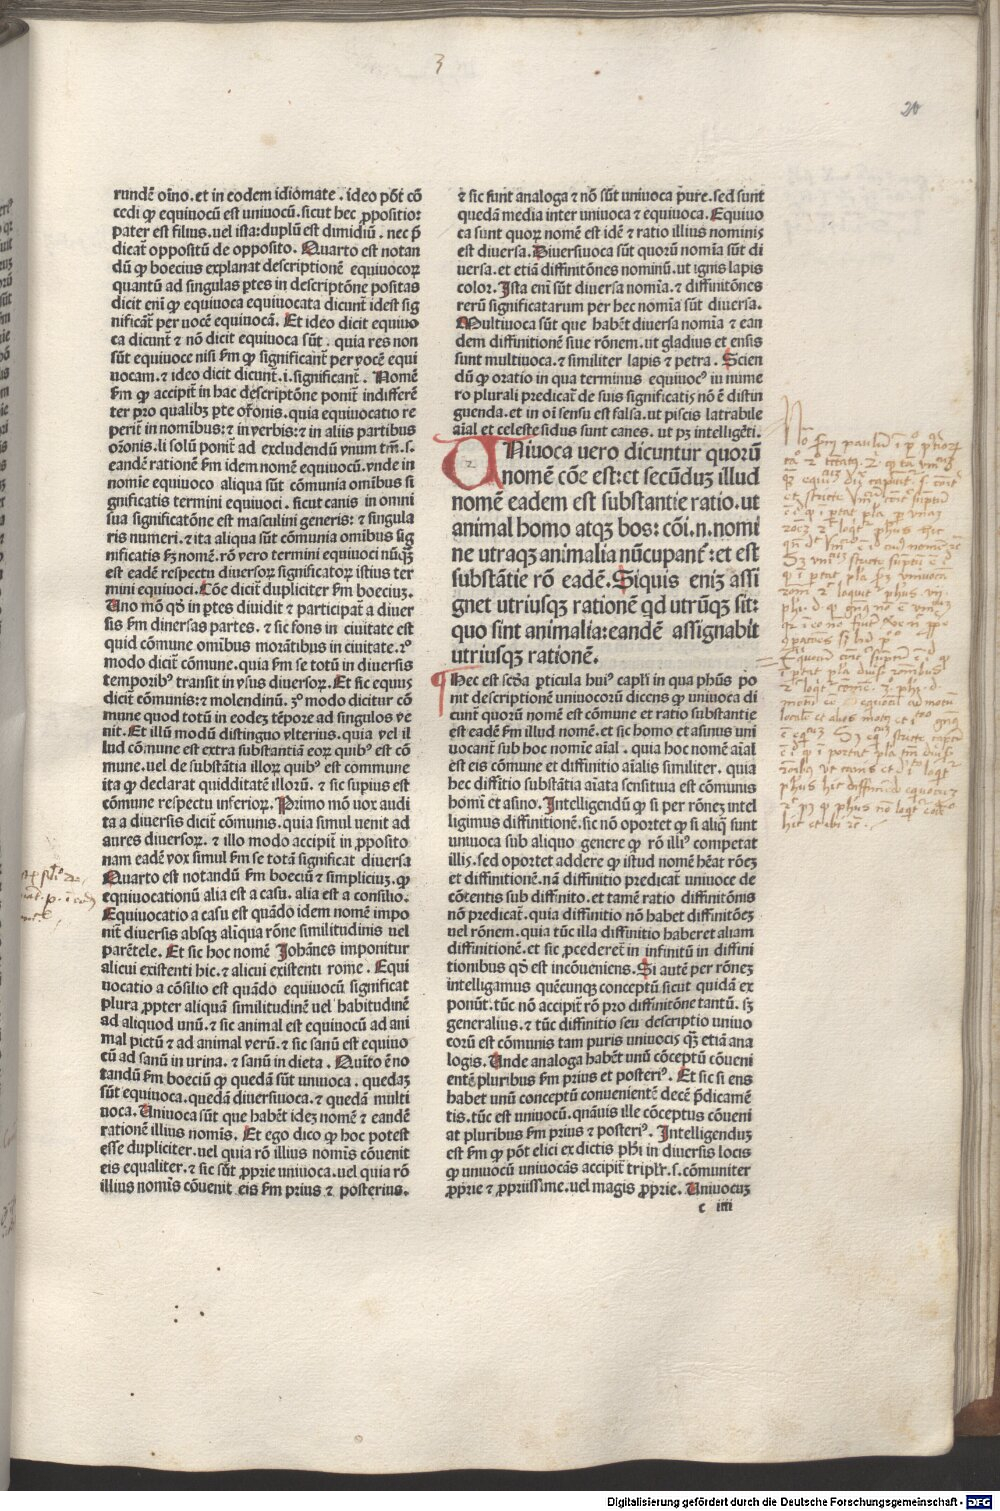 3
20
rundē oīno. et in eodem idiōmate. ideo pōt cō
cedi ꝙ equiuocū est uniuocū. sicut hec ꝓpositior
pater est filius. uel ista: duplū est dimidiū. nec p̄
dicat̄ oppositū de opposito. Quarto est notan
dū ꝙ boecius explanat descriptionē equiuocoꝝ
quantū ad singulas ꝑtes in descriptōne positas
dicit eni ꝙ equiuoca equiuocata dicunt̄ idest sig
nificāt̄ per uocē equiuocā. Et ideo dicit equiuo
ca dicunt̄ ⁊ nō dicit equiuoca sūt. quia res non
sūt equiuoce nisi ẜm ꝙ significant̄ per uocē equi
uocam. ⁊ ideo dicit dicunt̄. i. significant̄. Nomē
ẜm ꝙ accipit̄ in hac descriptōne ponit̄ indifferē
ter pro qualibꝫ ꝑte orōnis. quia equiuocatio re
perit̄ in nomībus: ⁊ in verbis: ⁊ in aliis partibus
orōnis. li solū ponit̄ ad excludendū ynum tm̄. s.
eandē rationē ẜm idem nomē equiuocū. vnde in
nomīe equiuoco aliqua sūt cōmunia omībus si
gnificatis termini equiuoci. sicut canis in omni
sua significatōne est masculini generis: ⁊ singula
ris numeri. ⁊ ita aliqua sūt cōmunia omībus sig
nificatis sꝫ nomē. rō vero termini equiuoci nūqꝫ
est eadē respectu diuersoꝝ significatoꝝ istius ter
mini equiuoci. Cōe dicit̄ dupliciter ẜm boecium.
Uno mō qd̄ in ꝑtes diuidit̄ ⁊ participat̄ a diuer
sis ẜm diuersas partes. ⁊ sic fons in ciuitate est
quid cōmune omībus morātibus in ciuitate. 2º
modo dicit̄ cōmune. quia ẜm se totū in diuersis
temporibꝰ transit in ysus diuersoꝝ. Et sic equus
dicit̄ cōmunis: ⁊ molendinū. 3º modo dicitur cō
mune quod totū in eodeꝫ tēpore ad singulos ve
nit. Et illū modū distinguo ylterius. quia vel il
lud cōmune est extra substantiā eoꝝ quibꝰ est cō
mune. uel de substātia illoꝝ quibꝰ est commune
ita ꝙ declarat quidditatē illoꝝ. ⁊ sic supius est
cōmune respectu inferioꝝ. Primo mō uox audi
ta a diuersis dicit̄ cōmunis. quia simul uenit ad
aures diuersoꝝ. ⁊ illo modo accipit̄ in ꝓposito
nam eadē vox simul ẜm se totā significat diuersa
Quarto est notandū ẜm boeciū ⁊ simpliciuꝫ. ꝙ
equiuocationū alia est a casu. alia est a consilio.
Equiuocatio a casu est quādo idem nomē impo
nit̄ diuersis absqꝫ aliqua rōne similitudinis uel
parētele. Et sic hoc nomē Johānes imponitur
alicui existenti hic. ⁊ alicui existenti rome. Equi
uocatio a cōsilio est quādo equiuocū significat
plura ꝓpter aliquā similitudinē uel habitudinē
ad aliquod unū. ⁊ sic animal est equiuocū ad ani
mal pictū ⁊ ad animal verū. ⁊ sic sanū est equiuo
cū ad sanū in urina. ⁊ sanū in dieta. Quīto ē no
tandū ẜm boeciū ꝙ quedā sūt uniuoca. quedaꝫ
sūt equiuoca. quedā diuersiuoca. ⁊ quedā multi
uoca. Uniuoca sūt que habēt ideꝫ nomē ⁊ eandē
rationē illius nomīs. Et ego dico ꝙ hoc potest
esse dupliciter. uel quia rō illius nomīs cōuenit
eis equaliter. ⁊ sic sūt ꝓprie uniuoca. uel quia rō
illius nomīs cōuenit eis ẜm prius ⁊ posterius.
⁊ sic sunt analoga ⁊ nō sūt uniuoca pure. sed sunt
quedā media inter uniuoca ⁊ equiuoca. Equiuo
ca sunt quoꝝ nomē est idē ⁊ ratio illius nominis
est diuersa. Diuersiuoca sūt quorū nomīa sūt di
uersa. et etiā diffinitōnes nominū. ut ignis lapis
color. Ista eni sūt diuersa nomīa. ⁊ diffinitōnes
rerū significatarum per hec nomīa sūt diuersa.
Multiuoca sūt que habēt diuersa nomīa ⁊ ean
dem diffinitionē siue rōnem. ut gladius et ensis
sunt multiuoca. ⁊ similiter lapis ⁊ petra. Scien
dū ꝙ oratio in qua terminus equiuocꝰ in nume
ro plurali predicat̄ de suis significatis nō ē distin
guenda. et in oī sensu est falsa. ut piscis latrabile
aīal et celeste sidus sunt canes. ut pꝫ intelligēti.
UNiuoca uero dicuntur quorū
nomē cōe est: et secūduꝫ illud
nomē eadem est substantie ratio. ut
animal homo atqꝫ bos: cōi. n. nomi
ne utraqꝫ animalia nūcupant̄: et est
substātie rō eadē. Siquis eniꝫ assi
gnet utriusqꝫ rationē qd utrūqꝫ sit:
quo sint animalia: eandē assignabit
utriusqꝫ rationē.
Hec est scd̄a ꝑticula huiꝰ capli in qua phūs po
nit descriptionē uniuocorū dicens ꝙ uniuoca di
cunt̄ quorū nomē est cōmune et ratio substantie
est eadē ẜm illud nomē. et sic homo et asinus uni
uocant̄ sub hoc nomīe aīal. quia hoc nomē aīal
est eis cōmune et diffinitio aīalis similiter. quia
hec diffītio substātia aīata sensitiua est cōmunis
homī et asino. Intelligendū ꝙ si per rōneꝫ intel
ligimus diffinitionē. sic nō oportet ꝙ si aliꝗ sunt
uniuoca sub aliquo genere ꝙ rō illiꝰ competat
illis. sed oportet addere ꝙ istud nomē hēat rōeꝫ
et diffinitionē. nā diffinitio predicat̄ uniuoce de
cōtentis sub diffinito. et tamē ratio diffinitōnis
nō predicat̄. quia diffinitio nō habet diffinitōeꝫ
uel rōnem. quia tūc illa diffinitio haberet aliam
diffinitionē. et sic ꝓcederet̄ in infinitū in diffini
tionibus qd̄ est incōueniens. Si autē per rōneꝫ
intelligamus quēcunqꝫ conceptū sicut quidā ex
ponūt. tūc nō accipit̄ rō pro diffinitōne tantū. sꝫ
generalius. ⁊ tūc diffinitio seu descriptio uniuo
corū est cōmunis tam puris uniuocis qꝫ etiā ana
logis. Unde analoga habēt unū cōceptū cōueni
entē pluribus ẜm prius et posteriꝰ. Et sic si ens
habet unū conceptū conuenientē decē p̄dicamē
tis. tūc est uniuocū. quāuis ille cōceptus cōueni
at pluribus ẜm prius ⁊ posteriꝰ. Intelligenduꝫ
est ẜm ꝙ pōt elici ex dictis phī in diuersis locis
ꝙ uniuocū uniuocās accipit̄ triplr̄. s. cōmuniter
ꝓprie ⁊ ꝓpriissime. uel magis ꝓprie. Uniuocuꝫ
c iiii
Digitalisierung gefördert durch die Deutsche Forschungsgemeinschaft - DFG